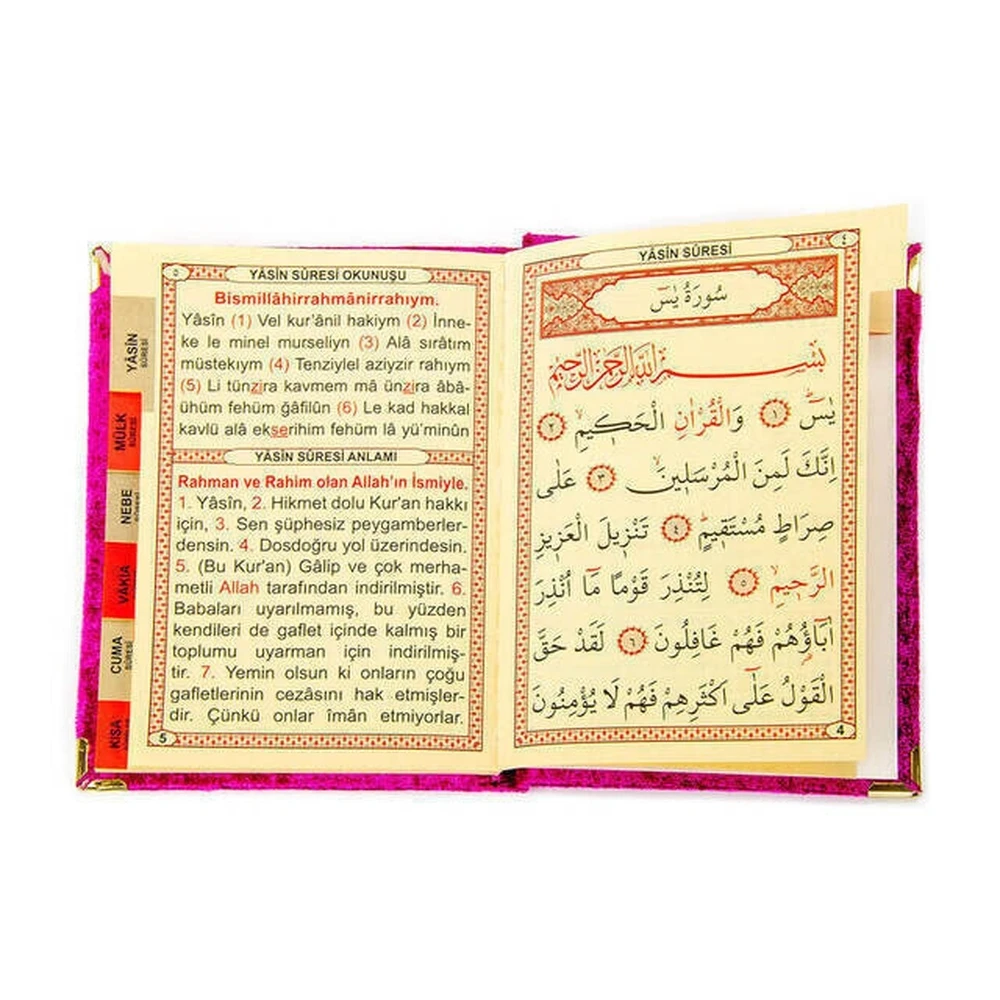 YÂSİN SÛRESİ
٤
سُورَةُ يٰسٓ
بِسْمِ اللّٰهِ الرَّحْمٰنِ الرَّحِيمِ
يٰسٓ ﴿١﴾ وَالْقُرْاٰنِ الْحَك۪يمِۙ ﴿٢﴾
اِنَّكَ لَمِنَ الْمُرْسَل۪ينَۙ ﴿٣﴾ عَلٰى
صِرَاطٍ مُسْتَق۪يمٍۜ ﴿٤﴾ تَنْز۪يلَ الْعَز۪يزِ
الرَّح۪يمِۙ ﴿٥﴾ لِتُنْذِرَ قَوْمًا مَٓا اُنْذِرَ
اٰبَٓاؤُ۬هُمْ فَهُمْ غَافِلُونَ ﴿٦﴾ لَقَدْ حَقَّ
الْقَوْلُ عَلٰٓى اَكْثَرِهِمْ فَهُمْ لَا يُؤْمِنُونَ
4
٥
YÂSİN SÛRESİ OKUNUŞU
Bismillâhirrahmânirrahıym.
Yâsîn (1) Vel kur’ânil hakiym (2) İnne-
ke le minel murseliyn (3) Alâ sırâtım
müstekıym (4) Tenziylel aziyzir rahıym
(5) Li tünzira kavmem mâ ünzira âbâ-
ühüm fehüm ğafilûn (6) Le kad hakkal
kavlü alâ ekserihim fehüm lâ yü’minûn
YÂSİN SÛRESİ ANLAMI
Rahman ve Rahim olan Allah’ın İsmiyle.
1. Yâsîn, 2. Hikmet dolu Kur'an hakkı
için, 3. Sen şüphesiz peygamberler-
densin. 4. Dosdoğru yol üzerindesin.
5. (Bu Kur'an) Gâlip ve çok merha-
metli Allah tarafından indirilmiştir. 6.
Babaları uyarılmamış, bu yüzden
kendileri de gaflet içinde kalmış bir
toplumu uyarman için indirilmiş-
tir. 7. Yemin olsun ki onların çoğu
gafletlerinin cezasını hak etmişler-
dir. Çünkü onlar îmân etmiyorlar.
5
YÂSİN
SÛRESİ
MÜLK
SÛRESİ
NEBE
VAKIA
CUMA
SÛRESİ
KISA